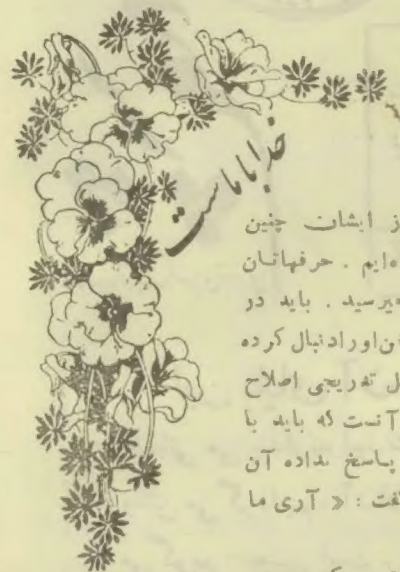 خدا با ماست
از ایشان چنین
ه‌ایم . حرفهاتان
میرسید . باید در
ن‌او را دنبال کرده
ل تدریجی اصلاح
آنست که باید با
پاسخ بداده آن
فت : « آری ما